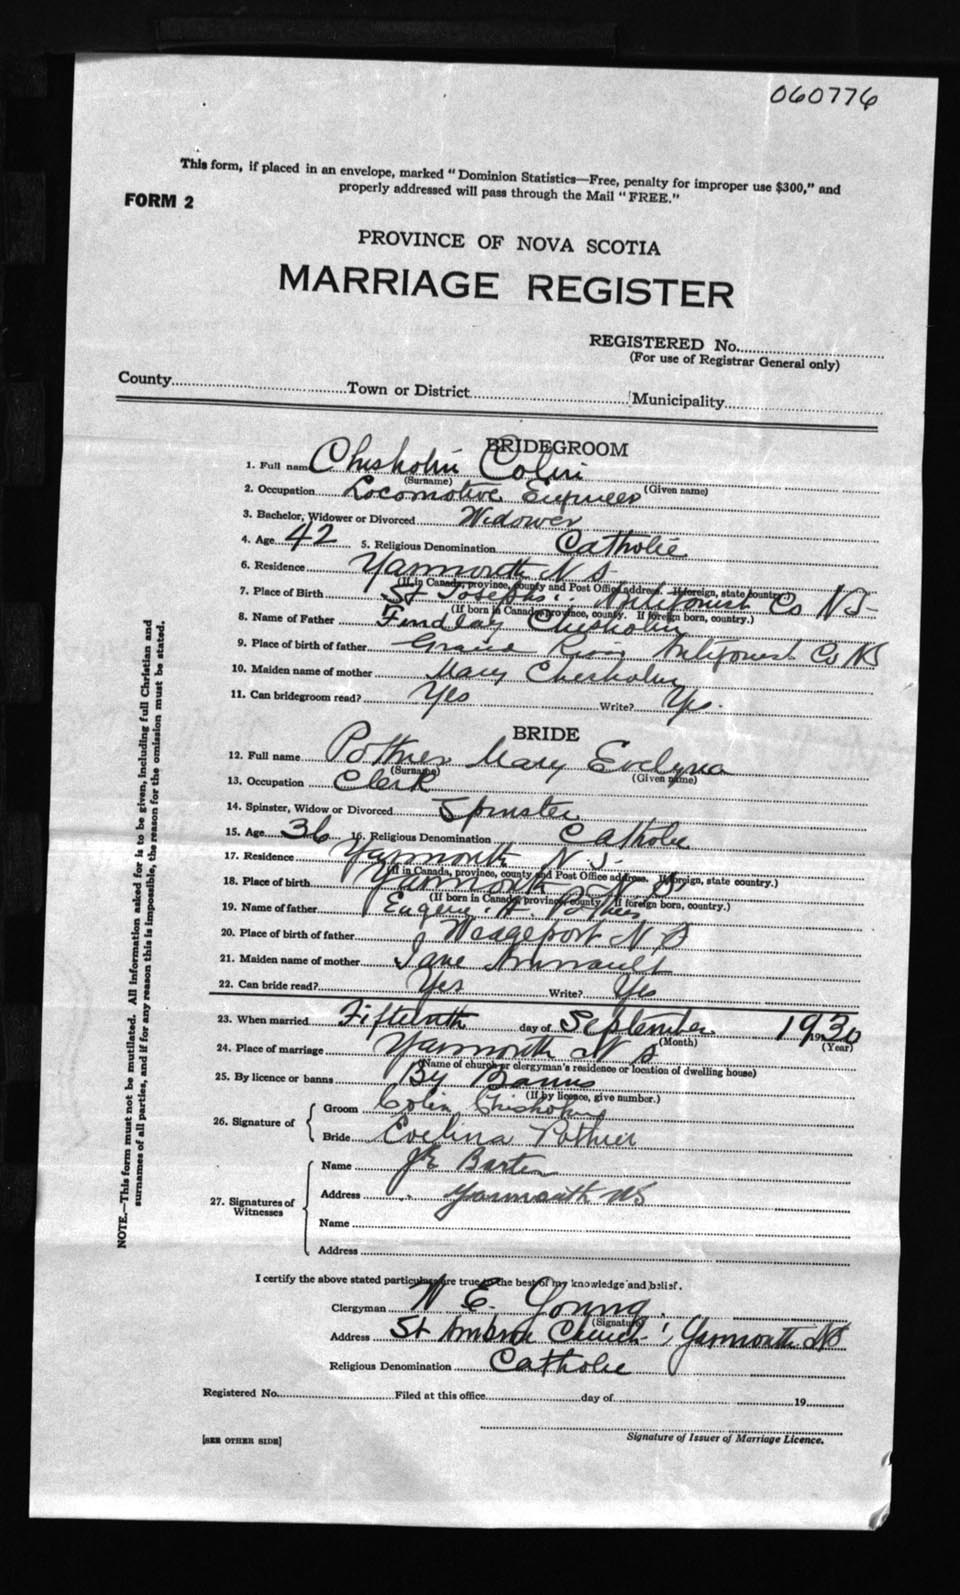 060776
This form, if placed in an envelope, marked "Dominion Statistics—Free, penalty for improper use $300," and
properly addressed will pass through the Mail "FREE."
FORM 2
PROVINCE OF NOVA SCOTIA
MARRIAGE REGISTER
REGISTERED No.
(For use of Registrar General only)
County Town or District Municipality
BRIDEGROOM
1. Full name Chisholm Colin
(Surname) (Given name)
2. Occupation Locomotive Engineer
3. Bachelor, Widower or Divorced Widower
4. Age 42 5. Religious Denomination Catholic
6. Residence Yarmouth N S
(If in Canada, province, county and Post Office address. If foreign, state country.)
7. Place of Birth St Josephs Antigonish Co NS
(If born in Canada, province, county. If foreign born, country.)
8. Name of Father Findlay Chisholm
9. Place of birth of father Antigonish Co NS
10. Maiden name of mother Mary Chisholm
11. Can bridegroom read? Yes Write? Yes.
BRIDE
12. Full name Pothier Mary Evelyna
(Surname) (Given name)
13. Occupation Clerk
14. Spinster, Widow or Divorced Spinster
15. Age 36 16. Religious Denomination Catholic
17. Residence Yarmouth N.S.
(If in Canada, province, county and Post Office address. If foreign, state country.)
18. Place of birth Yarmouth N S
(If born in Canada, province, county. If foreign born, country.)
19. Name of father Eugene H. Pothier
20. Place of birth of father Wedgeport N S
21. Maiden name of mother Jane
22. Can bride read? Yes Write? Yes
23. When married Fifteenth day of September 1930
(Month) (Year)
24. Place of marriage Yarmouth N S
(Name of church or clergyman's residence or location of dwelling house)
25. By licence or banns By Banns
(If by licence, give number.)
26. Signature of Groom Colin Chisholm
Bride Evelina Pothier
27. Signatures of Witnesses Name
Address Yarmouth NS
Name
Address
I certify the above stated particulars are true to the best of my knowledge and belief.
Clergyman W E. Young
(Signature)
Address St Ambrose Church, Yarmouth NS
Religious Denomination Catholic
Registered No. Filed at this office day of 19
Signature of Issuer of Marriage Licence.
[SEE OTHER SIDE]
NOTE.—This form must not be mutilated. All information asked for is to be given, including full Christian and
surnames of all parties, and if for any reason this is impossible, the reason for the omission must be stated.